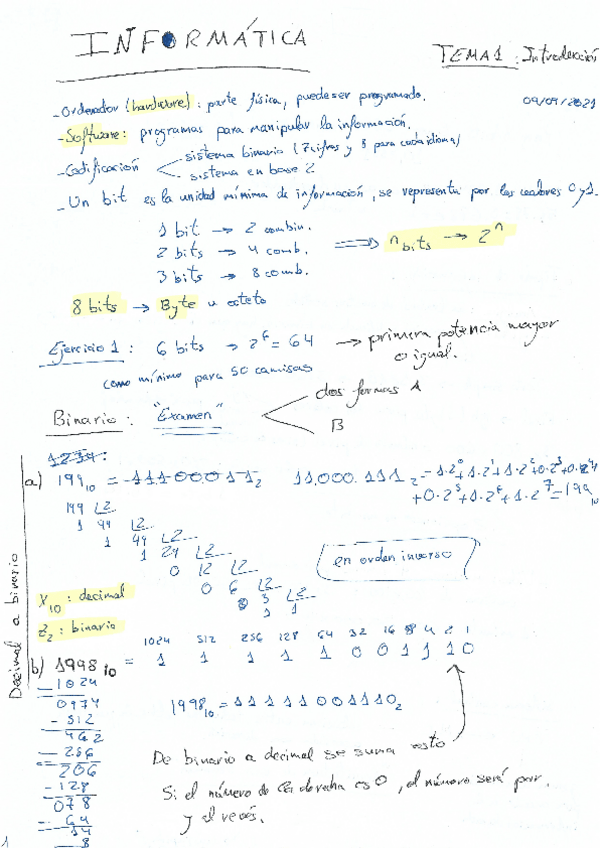 INFORMÁTICA
TEMA 1: Introducción
09/09/2021
- Ordenador (hardware): parte física, puede ser programado.
- Software: programas para manipular la información.
- Codificación
sistema binario (7 cifras y 8 para cada idioma)
sistema en base 2
- Un bit es la unidad mínima de información, se representa por los valores 0 y 1.
1 bit → 2 combin.
2 bits → 4 comb. ⟹ n bits → 2^n
3 bits → 8 comb.
8 bits → Byte u octeto
Ejercicio 1: 6 bits → 2^6 = 64 → primera potencia mayor
o igual.
como mínimo para 50 camisas
Binario: "Examen"
dos formas A
B
Decimal a binario
a) 199₁₀ = 11100011₂ 11.000.111₂ = 1·2^0+1·2^1+1·2^2+0·2^3+0·2^4
+0·2^5+1·2^6+1·2^7=199₁₀
199 L2
1 99 L2
1 49 L2
1 24 L2
0 12 L2
0 6 L2
0 3 L2
1 1
en orden inverso
X₁₀: decimal
Z₂: binario
1024 512 256 128 64 32 16 8 4 2 1
b) 1998₁₀ = 1 1 1 1 1 0 0 1 1 1 0
- 1024
0974
- 512
462
- 256
206
- 128
078
- 64
14
8
1998₁₀ = 11111001110₂
De binario a decimal se suma esto
Si el número de la derecha es 0, el número será par.
y el revés.
1